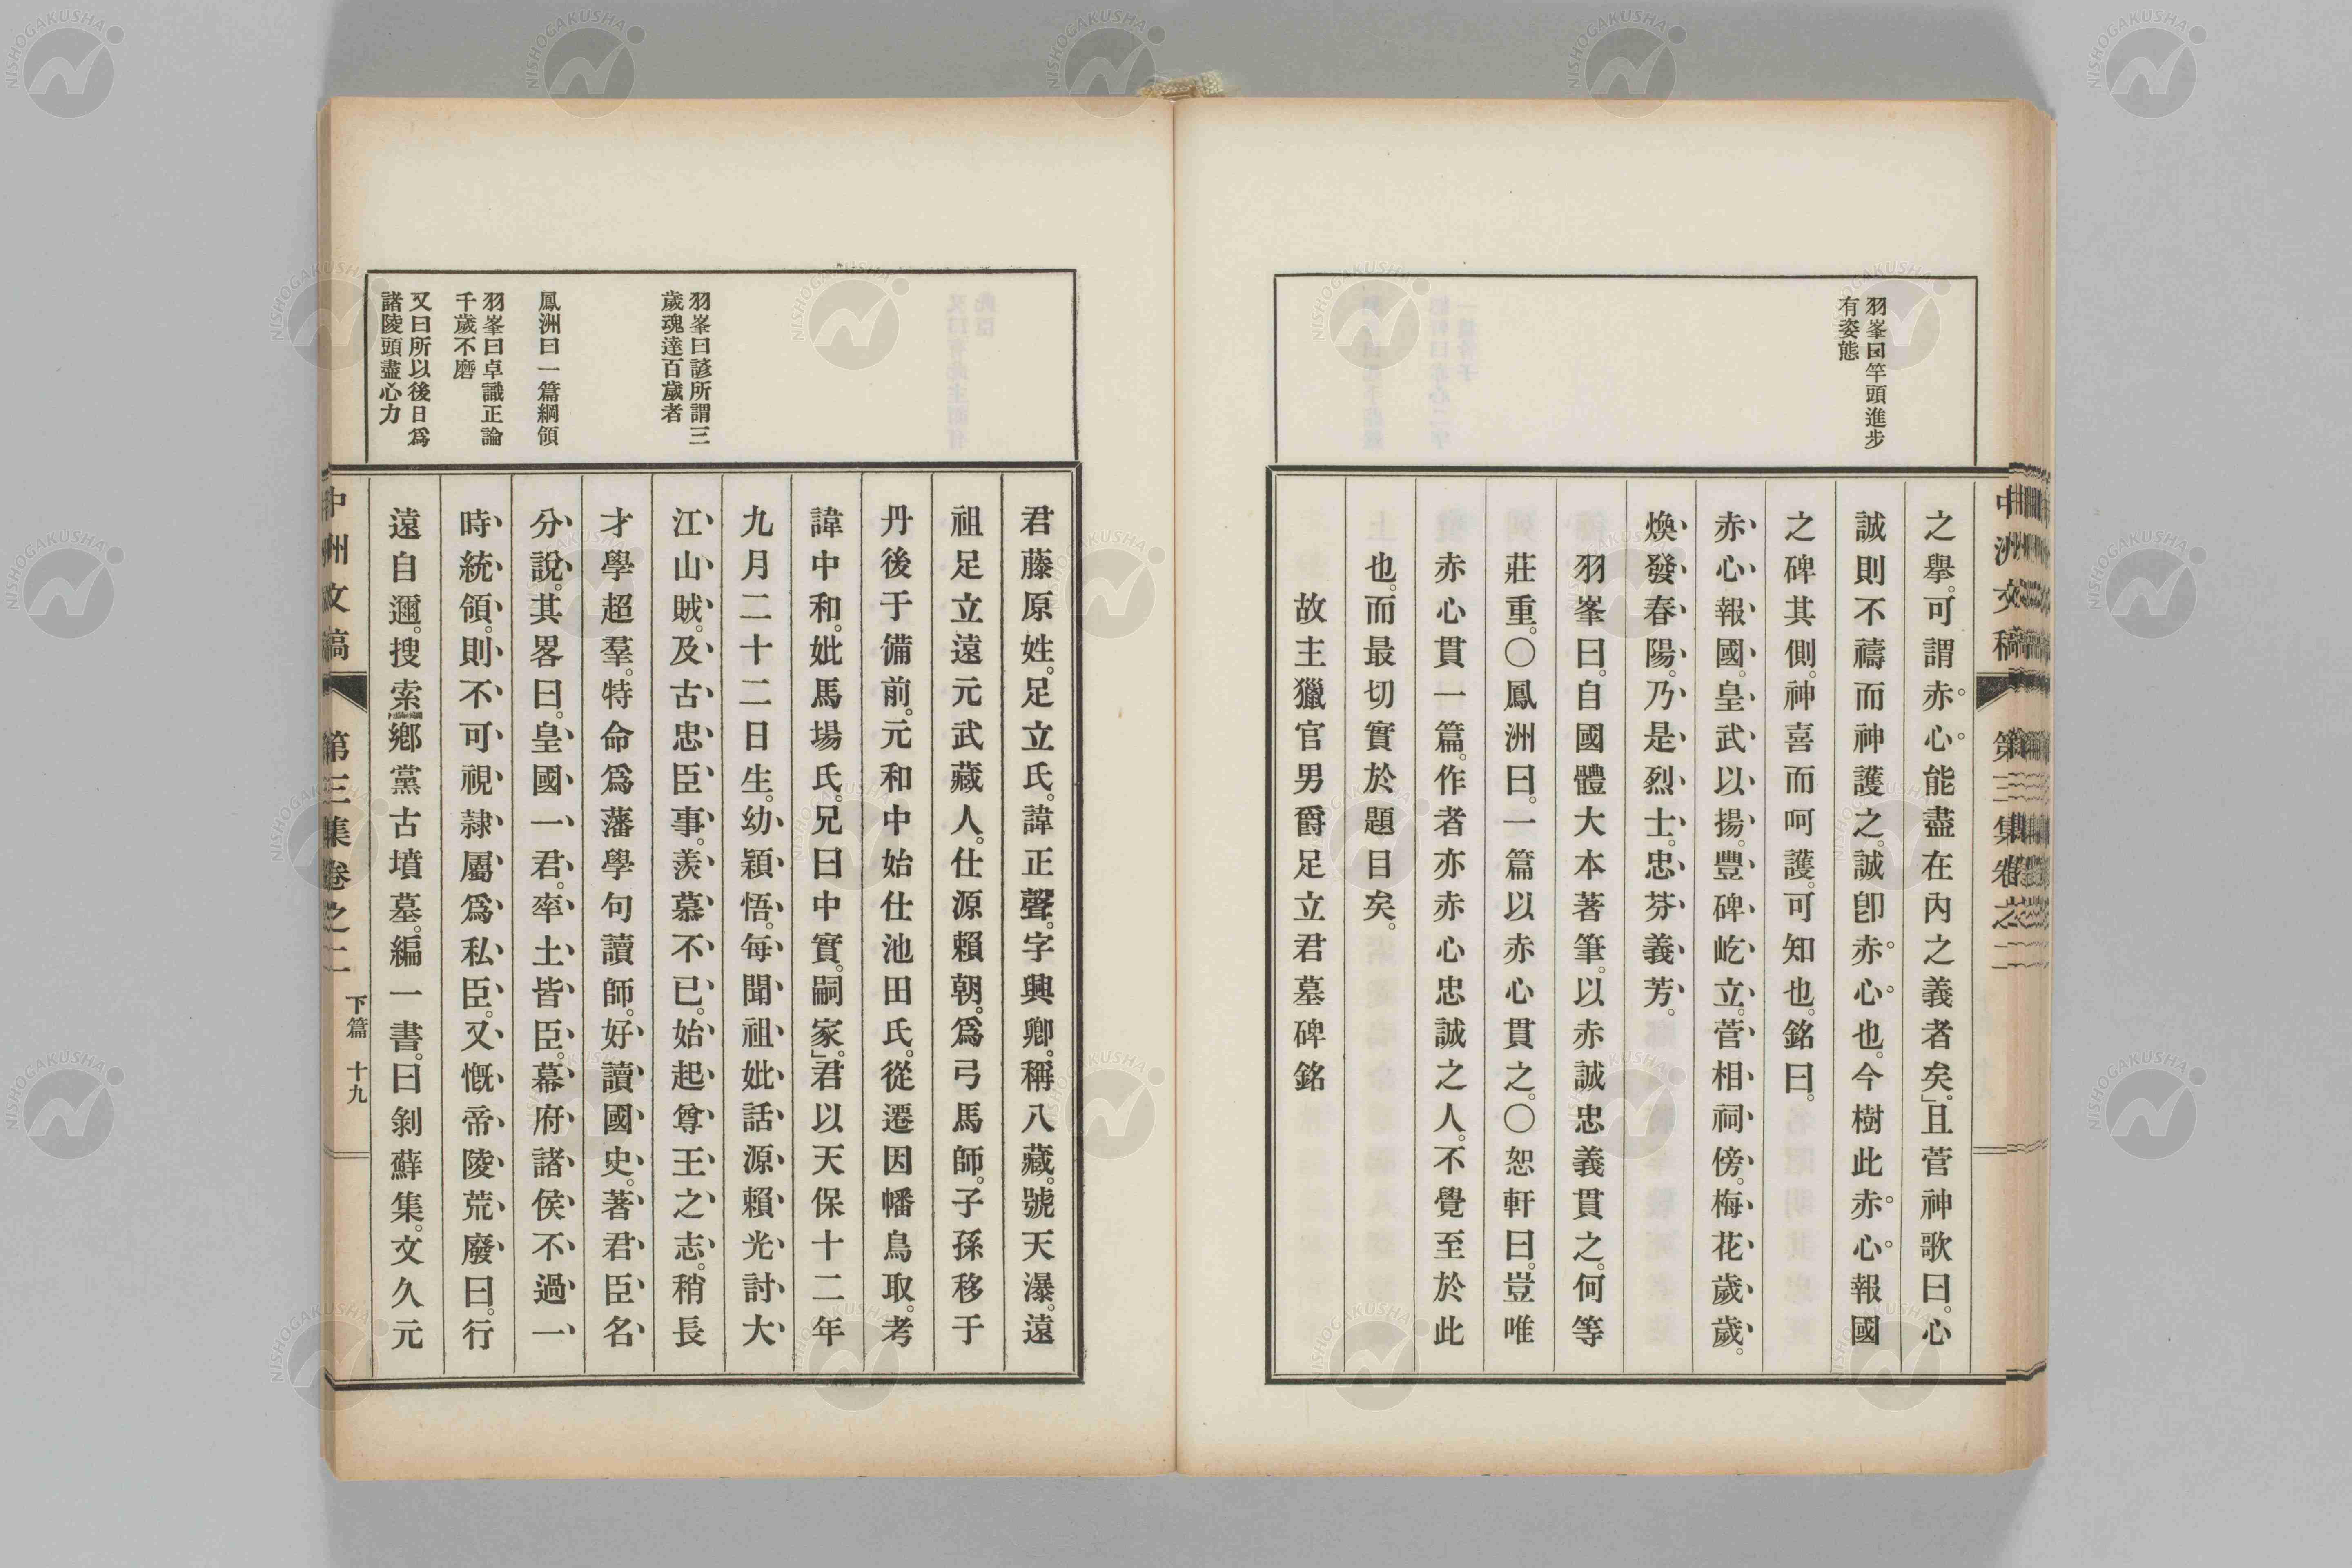 羽峯曰竿頭進步
有姿態
中洲文稿 第三集卷之二
之擧。可謂赤心能盡在內之義者矣。」且菅神歌曰。心
誠則不禱而神護之。誠卽赤心也。今樹此赤心報國
之碑其側。神喜而呵護。可知也。銘曰。
赤心報國。皇武以揚。豐碑屹立。菅相祠傍。梅花歲歲。
煥發春陽。乃是烈士。忠芬義芳。
羽峯曰。自國體大本著筆。以赤誠忠義貫之。何等
莊重。〇鳳洲曰。一篇以赤心貫之。〇恕軒曰。豈唯
赤心貫一篇。作者亦赤心忠誠之人。不覺至於此
也。而最切實於題目矣。
故主獵官男爵足立君墓碑銘
羽峯曰諺所謂三
歲魂達百歲者
鳳洲曰一篇綱領
羽峯曰卓識正論
千歲不磨
又曰所以後日爲
諸陵頭盡心力
君藤原姓。足立氏。諱正聲。字興卿。稱八藏。號天瀑。遠
祖足立遠元武藏人。仕源賴朝。爲弓馬師。子孫移于
丹後于備前。元和中始仕池田氏。從遷因幡鳥取。考
諱中和。妣馬場氏。兄曰中實。嗣家。」君以天保十二年
九月二十二日生。幼穎悟。每聞祖妣話源賴光討大
江山賊。及古忠臣事。羨慕不已。始起尊王之志。稍長
才學超羣。特命爲藩學句讀師。好讀國史。著君臣名
分說。其畧曰。皇國一君。率土皆臣。幕府諸侯不過一
時統領。則不可視隷屬爲私臣。又慨帝陵荒廢曰。行
遠自邇。搜索鄕黨古墳墓。編一書。曰剝蘚集。文久元
中洲文稿 第三集卷之二 下篇 十九
NISHOGAKUSHA